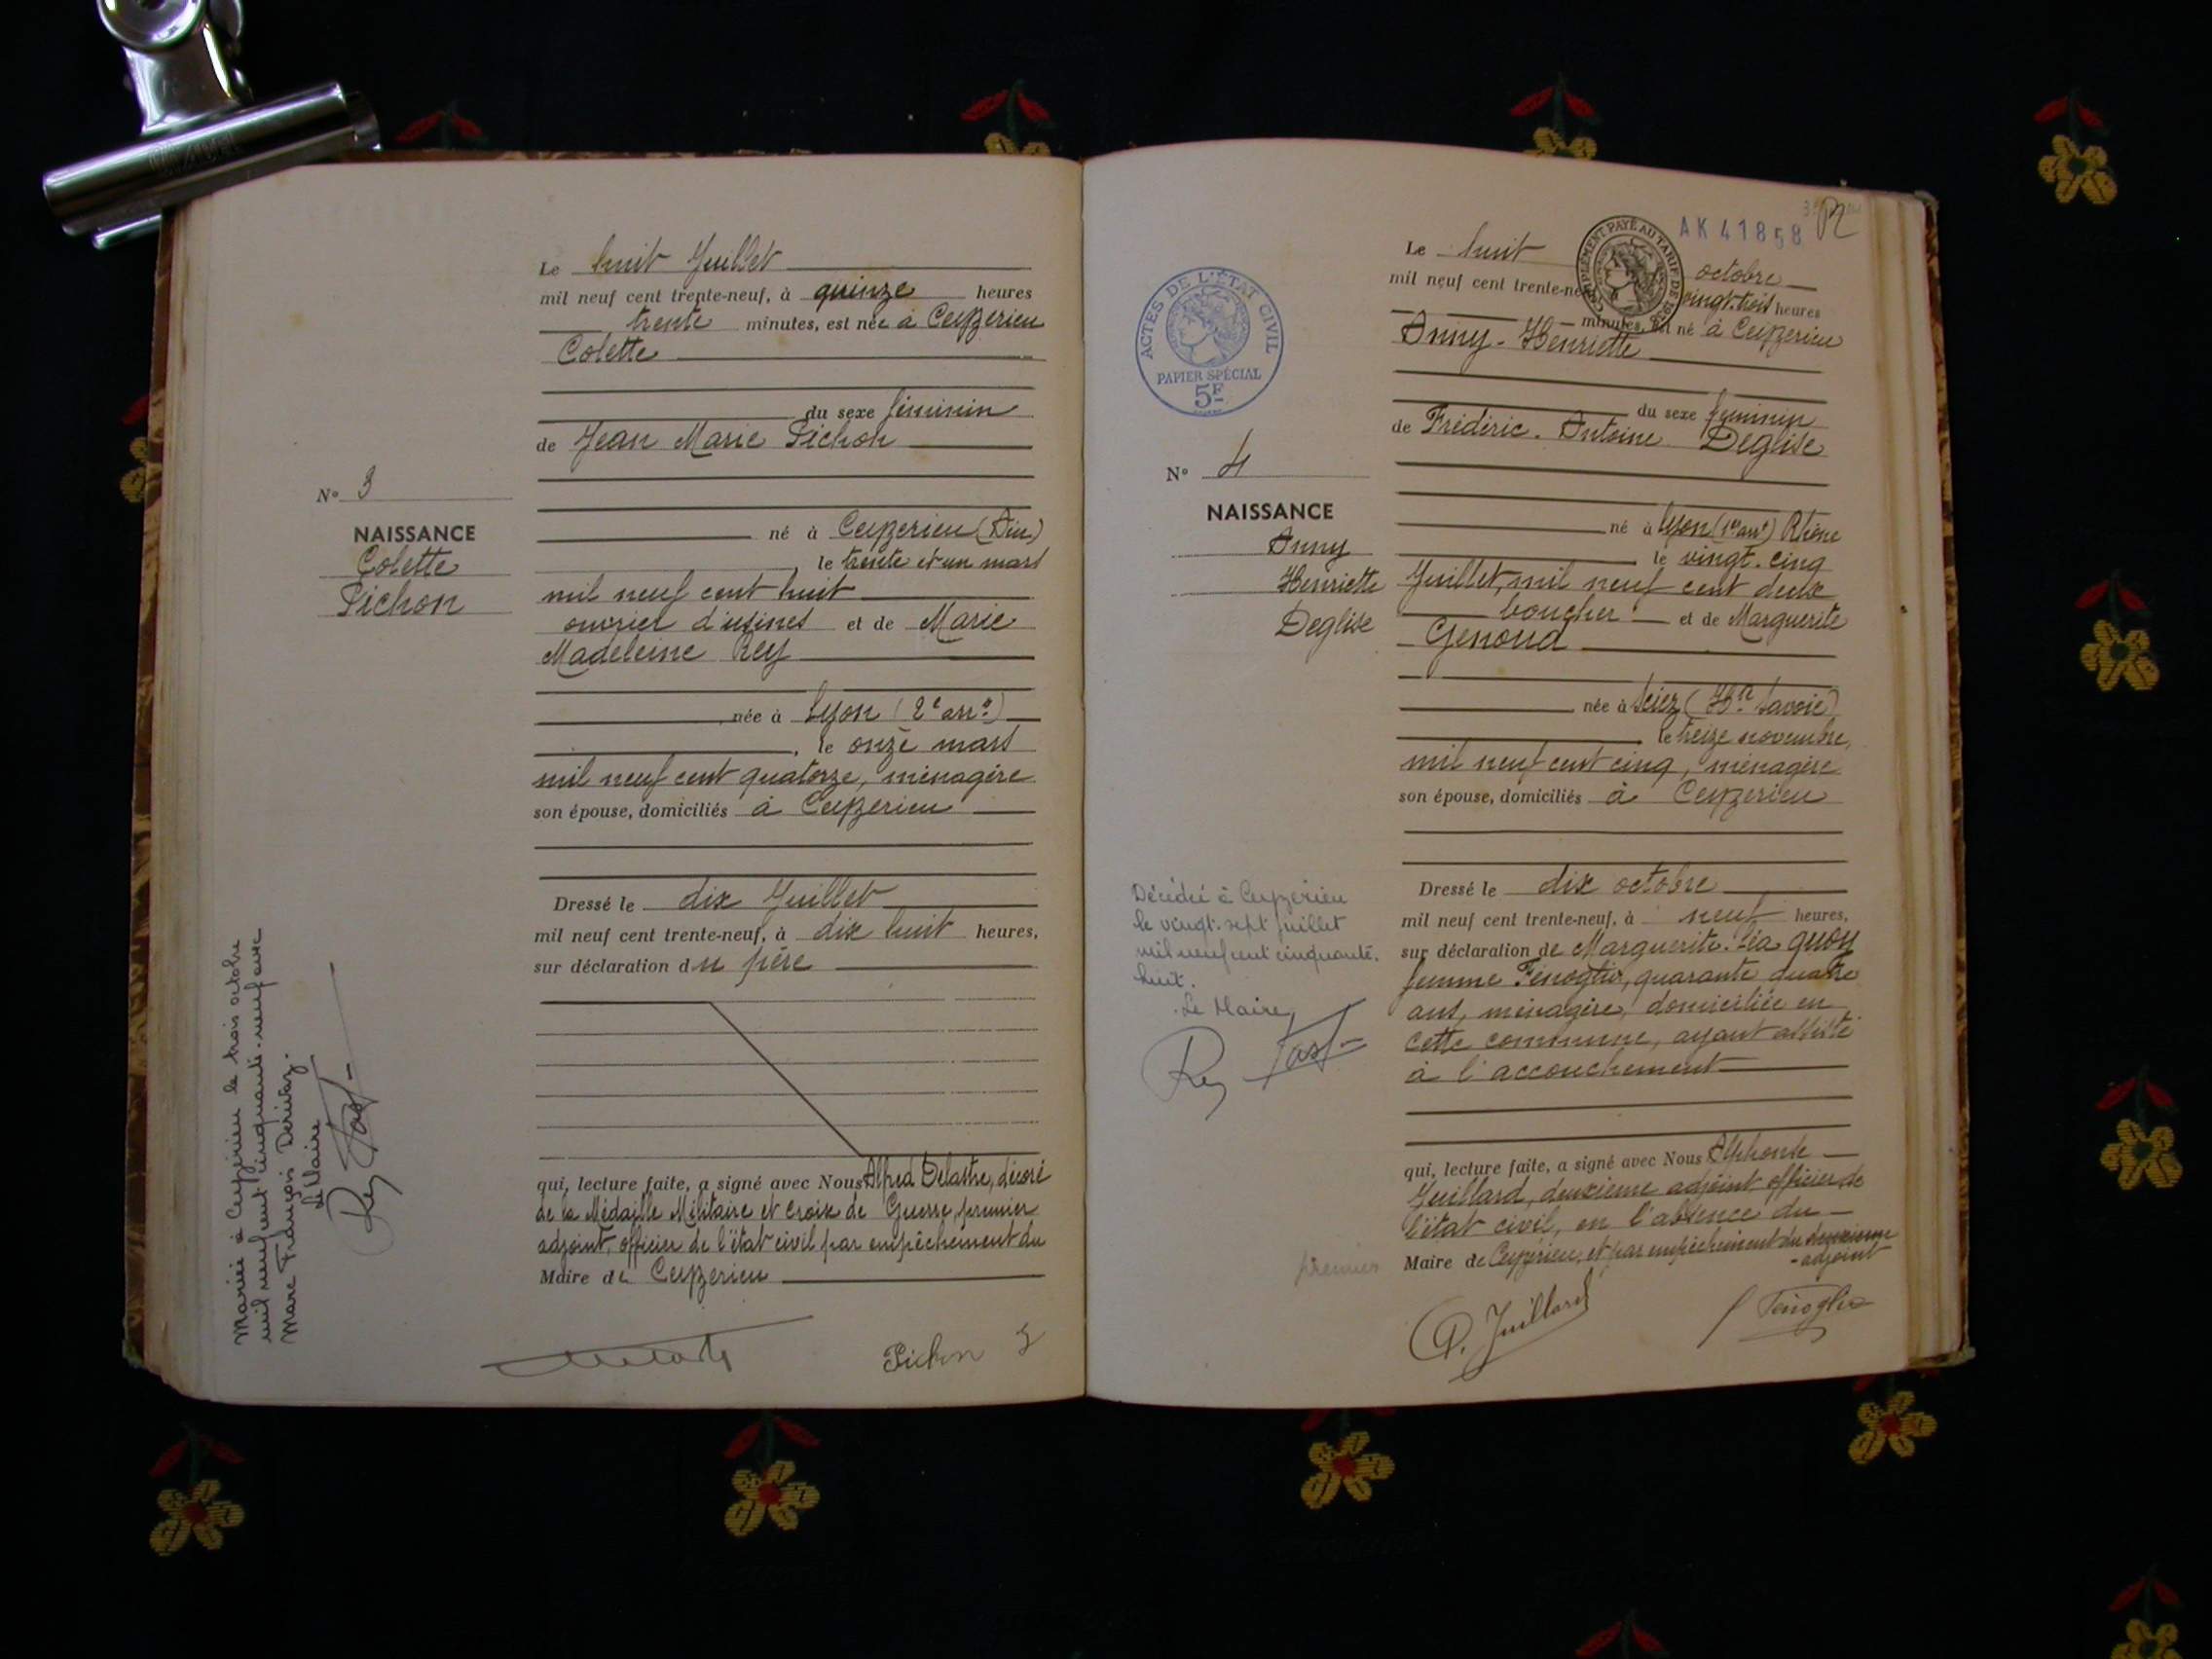 Le huit Juillet
mil neuf cent trente-neuf, à quinze heures
trente minutes, est née à Ceyzerieu
Colette
du sexe féminin
de Jean Marie Pichon
N° 3
NAISSANCE
Colette
Pichon
né à Ceyzerieu (Ain)
le trente et un mars
mil neuf cent huit
ouvrier d'usines et de Marie
Madeleine Rey
née à Lyon (2e arrt)
le onze mars
mil neuf cent quatorze, ménagère
son épouse, domiciliés à Ceyzerieu
Dressé le dix Juillet
mil neuf cent trente-neuf, à dix huit heures,
sur déclaration du père
qui, lecture faite, a signé avec Nous Alfred Delastre, décoré
de la Médaille Militaire et croix de Guerre, premier
adjoint, officier de l'état civil par empêchement du
Maire de Ceyzerieu
Pichon J
Mariée à Ceyzerieu le trois octobre
mil neuf cent cinquante-neuf avec
Marc François
Le Maire
ACTES DE L'ÉTAT CIVIL
PAPIER SPÉCIAL
5F
AK 41858
COMPLÉMENT PAYÉ AU TARIF DE 19
Le huit octobre
mil neuf cent trente-ne vingt-trois heures
minutes, est né à Ceyzerieu
Anny-Henriette
du sexe féminin
de Frédéric-Antoine Deglise
N° 4
NAISSANCE
Anny
Henriette
Deglise
né à Lyon (1er arrt) Rhône
le vingt-cinq
Juillet, mil neuf cent deux
boucher et de Marguerite
Genoud
née à Sciez (Hte Savoie)
le treize novembre,
mil neuf cent cinq, ménagère
son épouse, domiciliés à Ceyzerieu
Dressé le dix octobre
mil neuf cent trente-neuf, à neuf heures,
sur déclaration de Marguerite-Léa Guoy
femme Fenoglio, quarante quatre
ans, ménagère, domiciliée en
cette commune, ayant assisté
à l'accouchement
qui, lecture faite, a signé avec Nous Alphonse
Juillard, deuxième adjoint officier de
l'état civil, en l'absence du
premier
Maire de Ceyzerieu, et par empêchement du deuxième
-adjoint
A. Juillard
Fenoglio
Décédée à Ceyzerieu
le vingt-sept juillet
mil neuf cent cinquante-
huit.
Le Maire,